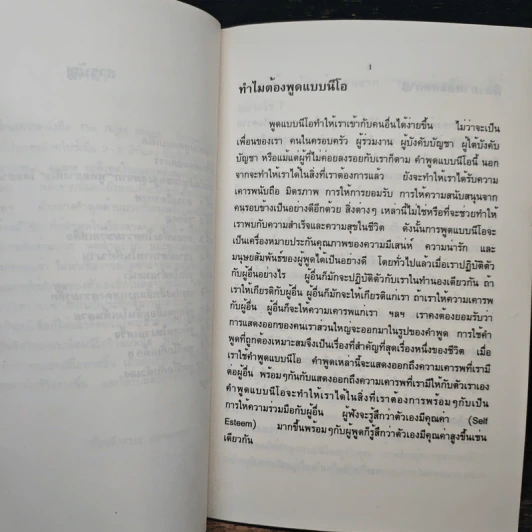 สารบัญ
1
ทำไมต้องพูดแบบนีโอ
พูดแบบนีโอทำให้เราเข้ากับคนอื่นได้ง่ายขึ้น ไม่ว่าจะเป็น
เพื่อนของเรา คนในครอบครัว ผู้ร่วมงาน ผู้บังคับบัญชา ผู้ใต้บังคับ
บัญชา หรือแม้แต่ผู้ที่ไม่ค่อยลงรอยกับเราก็ตาม คำพูดแบบนีโอนี้ นอก
จากจะทำให้เราได้ในสิ่งที่เราต้องการแล้ว ยังจะทำให้เราได้รับความ
เคารพนับถือ มิตรภาพ การให้การยอมรับ การให้ความสนับสนุนจาก
คนรอบข้างเป็นอย่างดีอีกด้วย สิ่งต่างๆ เหล่านี้ไม่ใช่หรือที่จะช่วยทำให้
เราพบกับความสำเร็จและความสุขในชีวิต ดังนั้นการพูดแบบนีโอจะ
เป็นเครื่องหมายประกันคุณภาพของความมีเสน่ห์ ความน่ารัก และ
มนุษยสัมพันธ์ของผู้พูดได้เป็นอย่างดี โดยทั่วไปแล้วเมื่อเราปฏิบัติตัว
กับผู้อื่นอย่างไร ผู้อื่นก็มักจะปฏิบัติตัวกับเราในทำนองเดียวกัน ถ้า
เราให้เกียรติกับผู้อื่น ผู้อื่นก็มักจะให้เกียรติแก่เรา ถ้าเราให้ความเคารพ
กับผู้อื่น ผู้อื่นก็จะให้ความเคารพแก่เรา ฯลฯ เราคงต้องยอมรับว่า
การแสดงออกของคนเราส่วนใหญ่จะออกมาในรูปของคำพูด การใช้คำ
พูดที่ถูกต้องเหมาะสมจึงเป็นเรื่องที่สำคัญที่สุดเรื่องหนึ่งของชีวิต เมื่อ
เราใช้คำพูดแบบนีโอ คำพูดเหล่านี้จะแสดงออกถึงความเคารพที่เรามี
ต่อผู้อื่น พร้อมๆกันกับแสดงออกถึงความเคารพที่เรามีให้กับตัวเราเอง
คำพูดแบบนีโอจะทำให้เราได้ในสิ่งที่เราต้องการพร้อมๆกับเป็น
การให้ความร่วมมือกับผู้อื่น ผู้ฟังจะรู้สึกว่าตัวเองมีคุณค่า (Self
Esteem) มากขึ้นพร้อมๆกับผู้พูดก็รู้สึกว่าตัวเองมีคุณค่าสูงขึ้นเช่น
เดียวกัน